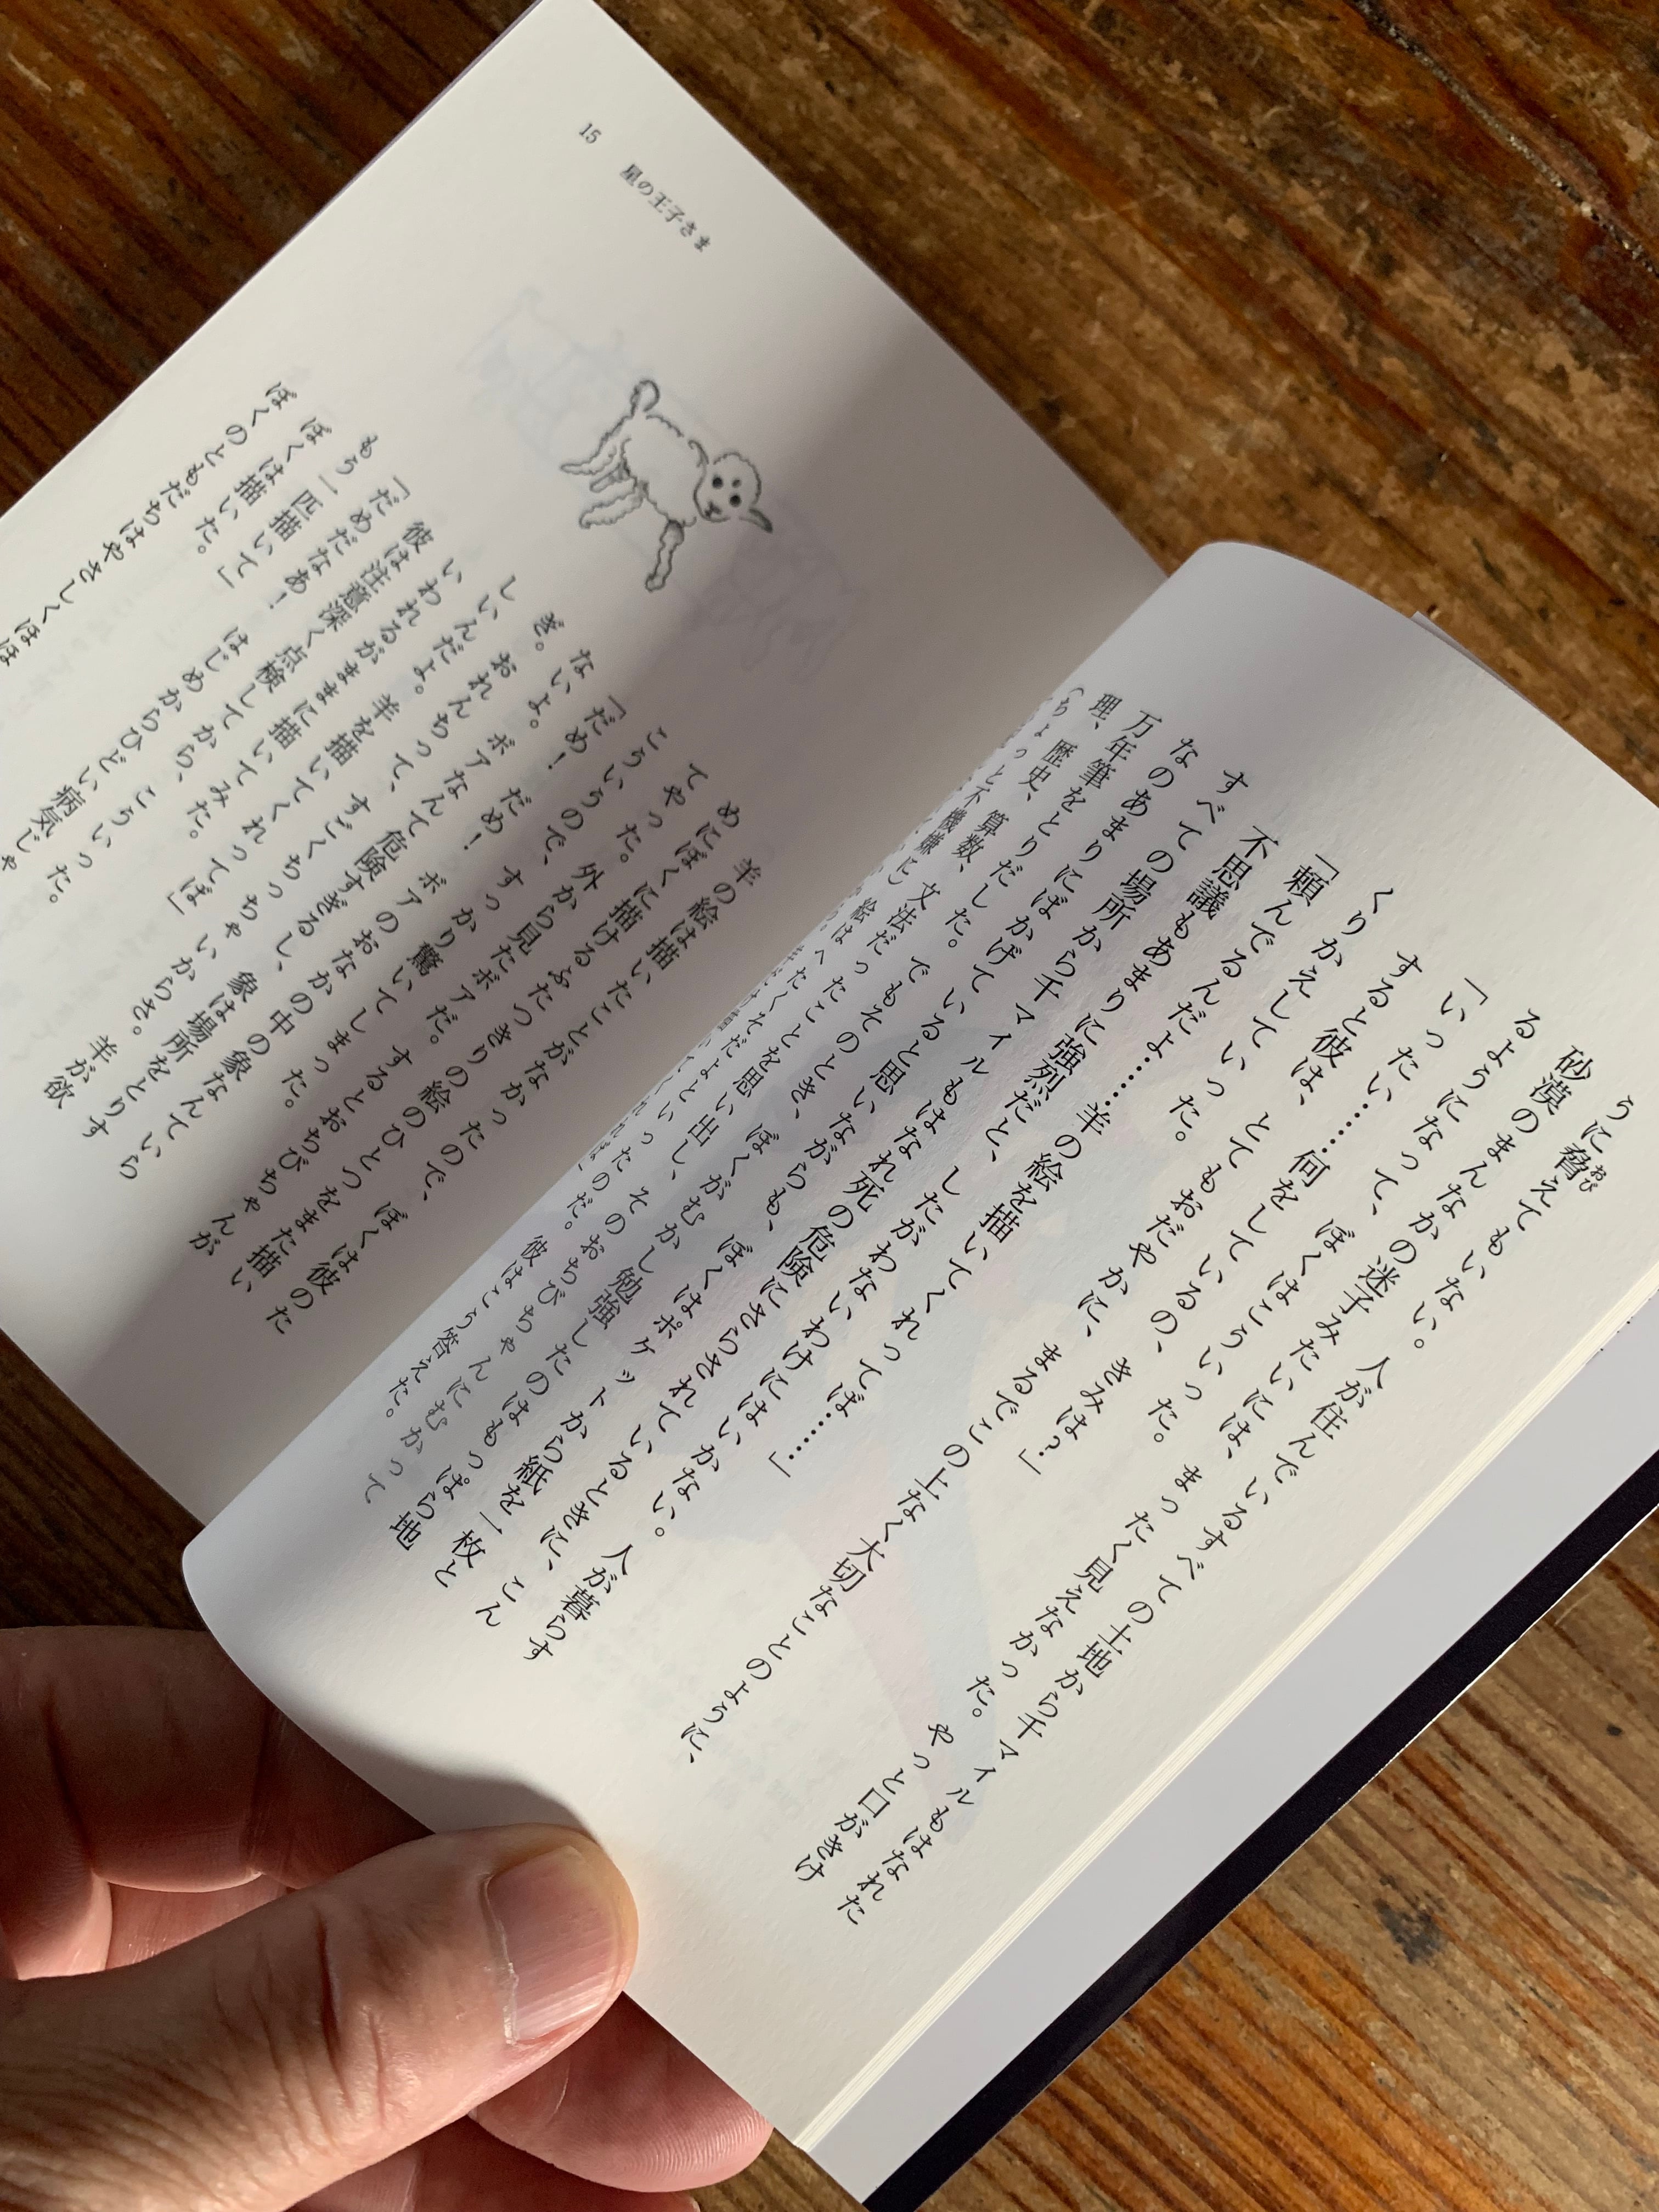 うに脅えてもいない。人が住んでいるすべての土地から千マイルもはなれた
砂漠のまんなかの迷子みたいには、まったく見えなかった。やっと口がきけ
るようになって、ぼくはこういった。
「いったい……何をしているの、きみは?」
すると彼は、とてもおだやかに、まるでこの上なく大切なことのように、
くりかえしていった。
「頼んでるんだよ……羊の絵を描いてくれってば……」
不思議もあまりに強烈だと、したがわないわけにはいかない。人が暮らす
すべての場所から千マイルもはなれ死の危険にさらされているときに、こん
なのあまりにばかげていると思いながらも、ぼくはポケットから紙を一枚と
万年筆をとりだした。でもそのとき、ぼくがむかし勉強したのはもっぱら地
理、歴史、算数、文法だったことを思い出し、そのおちびちゃんにむかって
(ちょっと不機嫌に)絵はへたくそだよといった。彼はこう答えた。
羊の絵は描いたことがなかったので、ぼくは彼のた
めにぼくに描けるふたつきりの絵のひとつをまた描い
てやった。外から見たボアだ。するとおちびちゃんが
こういうので、すっかり驚いてしまった。
「だめ! だめ! ボアのおなかの中の象なんていら
ないよ。ボアなんて危険すぎるし、象は場所をとりす
ぎ。おれんちって、すごくちっちゃいからさ。羊が欲
しいんだよ。羊を描いてくれってば」
いわれるがままに描いてみた。
彼は注意深く点検してから、こういった。
「だめだなあ! はじめからひどい病気じゃ
もう一匹描いて」
ぼくは描いた。
ぼくのともだちはやさしくほほ
15 星の王子さま